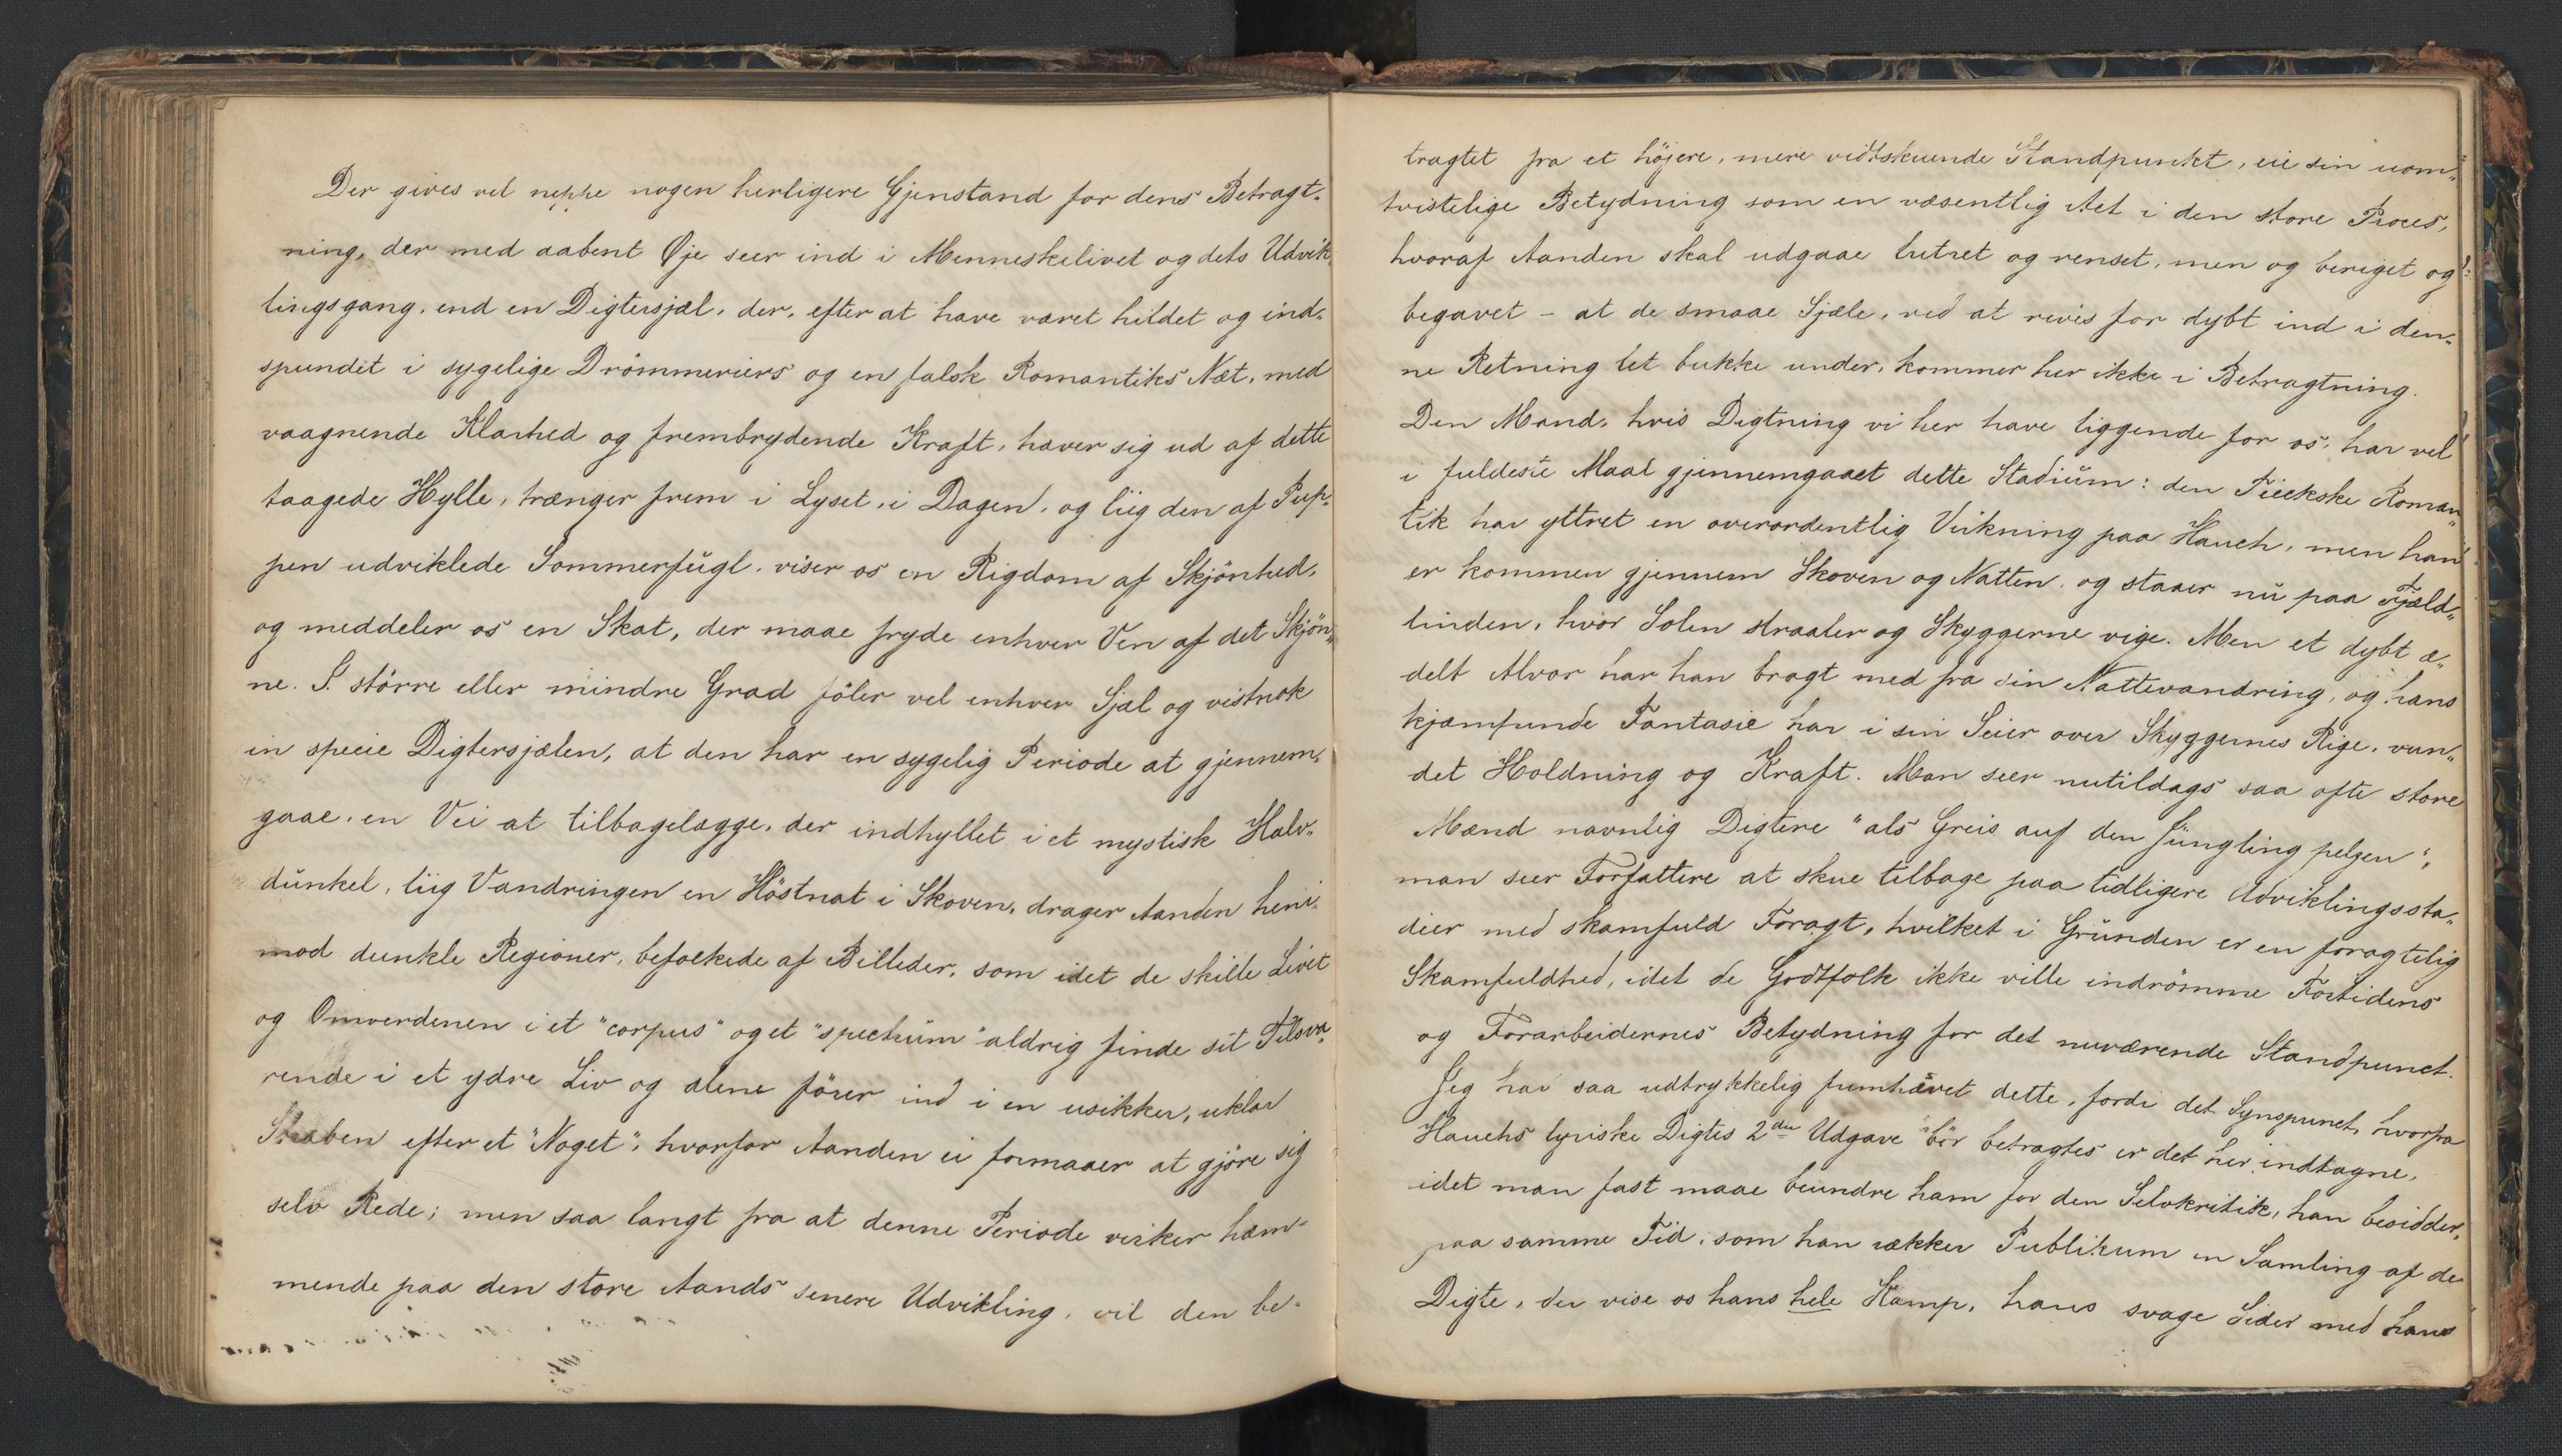 Der gives vel neppe nogen herligere Gjenstand for dens Betragt-
ning, der med aabent Øje seer ind i Menneskelivet og dets Udvik-
lingsgang, end en Digtersjæl, der, efter at have været hildet og ind-
spundet i sygelige Drömmeriers og en falsk Romantiks Næt, med
vaagnende Klarhed og frembrydende Kraft, hæver sig ud af dette
taagede Hylle, trænger frem i Lyset, i Dagen, og liig den af Pup-
pen udviklede Sommerfugl, viser os en Rigdom af Skjönhed,
og meddeler os en Skat, der maae fryde enhver Ven af det Skjön-
ne. I större eller mindre Grad föler vel enhver Sjæl og vistnok
in specie Digtersjælen, at den har en sygelig Periode at gjennem-
gaae, en Vei at tilbagelægge, der indhyllet i et mystisk Halv-
dunkel, liig Vandringen en Höstnat i Skoven, drager Aanden heni-
mod dunkle Regioner, befolkede af Billeder, som idet de skille Livet
og Omverdenen i et "corpus" og et "spectrum" aldrig finde sit Tilsva-
rende i et ydre Liv og alene förer ind i en usikker, uklar
Stræben efter et "Noget", hvorfor Aanden ei formaaer at gjöre sig
selv Rede; men saa langt fra at denne Periode virker hæm-
mende paa den store Aands senere Udvikling, vil den be-
tragtet fra et höjere, mere vidtskuende Standpunkt, eie sin uom-
tvistelige Betydning som en væsentlig Act i den store Proces,
hvoraf Aanden skal udgaae lutret og renset, men og beriget og
begavet - at de smaae Sjæle, ved at rives for dybt ind i den-
ne Retning let bukke under, kommer her ikke i Betragtning.
Den Mand, hvis Digtning vi her have liggende for os, har vel
i fuldeste Maal gjennemgaaet dette Stadium: den Tieckske Roman-
tik har yttret en overordentlig Virkning paa Hauch, men han
er kommen gjennem Skoven og Natten, og staaer nu paa Fjæld-
tinden, hvor Solen straaler og Skyggerne vige. Men et dybt æ-
delt Alvor har han bragt med fra sin Nattevandring, og hans
kjæmpende Fantasie har i sin Seier over Skyggernes Rige, vun-
det Holdning og Kraft. Man seer nutildags saa ofte store
Mænd navnlig Digtere "als Greis auf den Jüngling pelzen",
man seer Forfattere at skue tilbage paa tidligere Udviklingssta-
dier med skamfuld Foragt, hvilket i Grunden er en foragtelig
Skamfuldhed, idet de Godtfolk ikke ville indrömme Fortidens
og Forarbeidernes Betydning for det nuværende Standpunct.
Jeg har saa udtrykkelig fremhævet dette, fordi det Synspunct, hvorfra
Hauchs lyriske Digtes 2den Udgave bör betragtes er det her indtagne,
idet man fast maae beundre ham for den Selvkritik, han besidder,
paa samme Tid, som han rækker Publikum en Samling af de
Digte, der vise os hans hele Kamp, hans svage Sider med hans